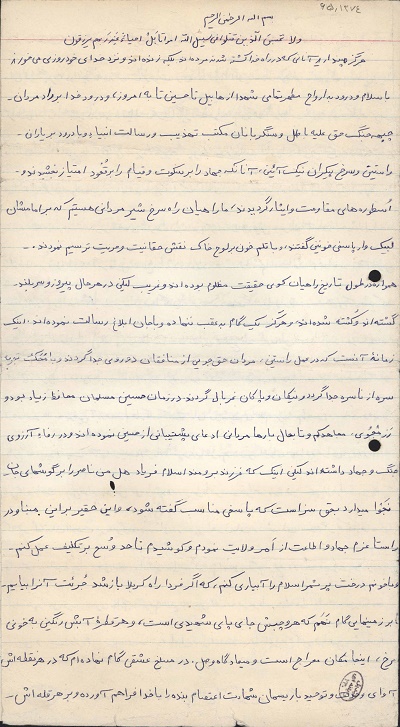 بسم الله الرحمن الرحیم
ولا تحسبن الذین قتلوا فی سبیل الله امواتا بل احیاء عند ربهم یرزقون
هرگز مپندارید آنانی که در راه خدا کشته شدند مرده اند بلکه زنده اند و نزد خدای خود روزی می خورند
با سلام و درود به ارواح مطهر تمامی شهدا از هابیل تا حسین تا به امروز و درود خدا بر مردان
جبهه جنگ حق علیه باطل و سنگربانان مکتب تهذیب و رسالت انبیاء و با درود بر یاران
راستین و سرخ پیکران نیک آئین، آنانکه جهاد را بر سکوت و قیام را بر قعود امتیاز بخشیدند.
اسطوره های مقاومت و ایثار گردیدند، ما راهیان راه سرخ شیر مردانی هستیم که بر امامشان
لبیک وار پاسخی خونین گفتند، و با قلم خون بر لوح خاک نقش حقانیت و حریت ترسیم نمودند.
همواره در طول تاریخ راهیان کوی حقیقت مظلوم بوده اند و غریب لیکن در هر حال پیروز و سربلند.
کشته اند و کشته شده اند و هرگز یک گام به عقب ننهاده و با جان ابلاغ رسالت نموده اند، اینک
زمانه آنست که در عمل راستین، مردان حق جوی از منافقان دوروی جدا گردند و با محک تجربه
سره از ناسره جدا گردد و نیکان و پاکان غربال گردند. در زمان حسین مسلمان محافظ زیاد بود و
معاهد کم و تا بحال بارها مردمانی ادعای پشتیبانی از حسین نموده اند و در رفاه آرزوی
جنگ و جهاد داشته اند لیکن اینک که فرزند برومند اسلام فریاد هل من ناصر را بر گوشهای جان
نجوا میدارد بحق سزاست که پاسخی مناسب گفته شود، و این حقیر بر این مبنا و در
راستا عزم جهاد و اطاعت از امر ولایت نمودم و کوشیدم تا حد وسع بر تکلیف عمل کنم.
و با خونم درخت پر ثمر اسلام را آبیاری کنم، که اگر فردا راه کربلا باز شد جرئت آنرا بیابیم.
تا بر زمینهایی گام نهم که هر وجبش جای پای شهیدی است، و هر قطره آبش رنگین به خونی
سرخ، اینجا مکان معراج است و میعادگاه وصل. در مسلخ عشقی گام نهاده ام که در هر نقطه اش
آوای و توحید با ریسمان شهادت اعتصام بنده را با خدا فراهم آورده و بر هر قله اش